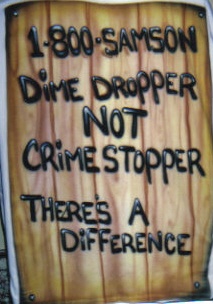 1-800-SAMSON
DIME DROPPER
NOT
CRIMESTOPPER
THERE'S A
DIFFERENCE